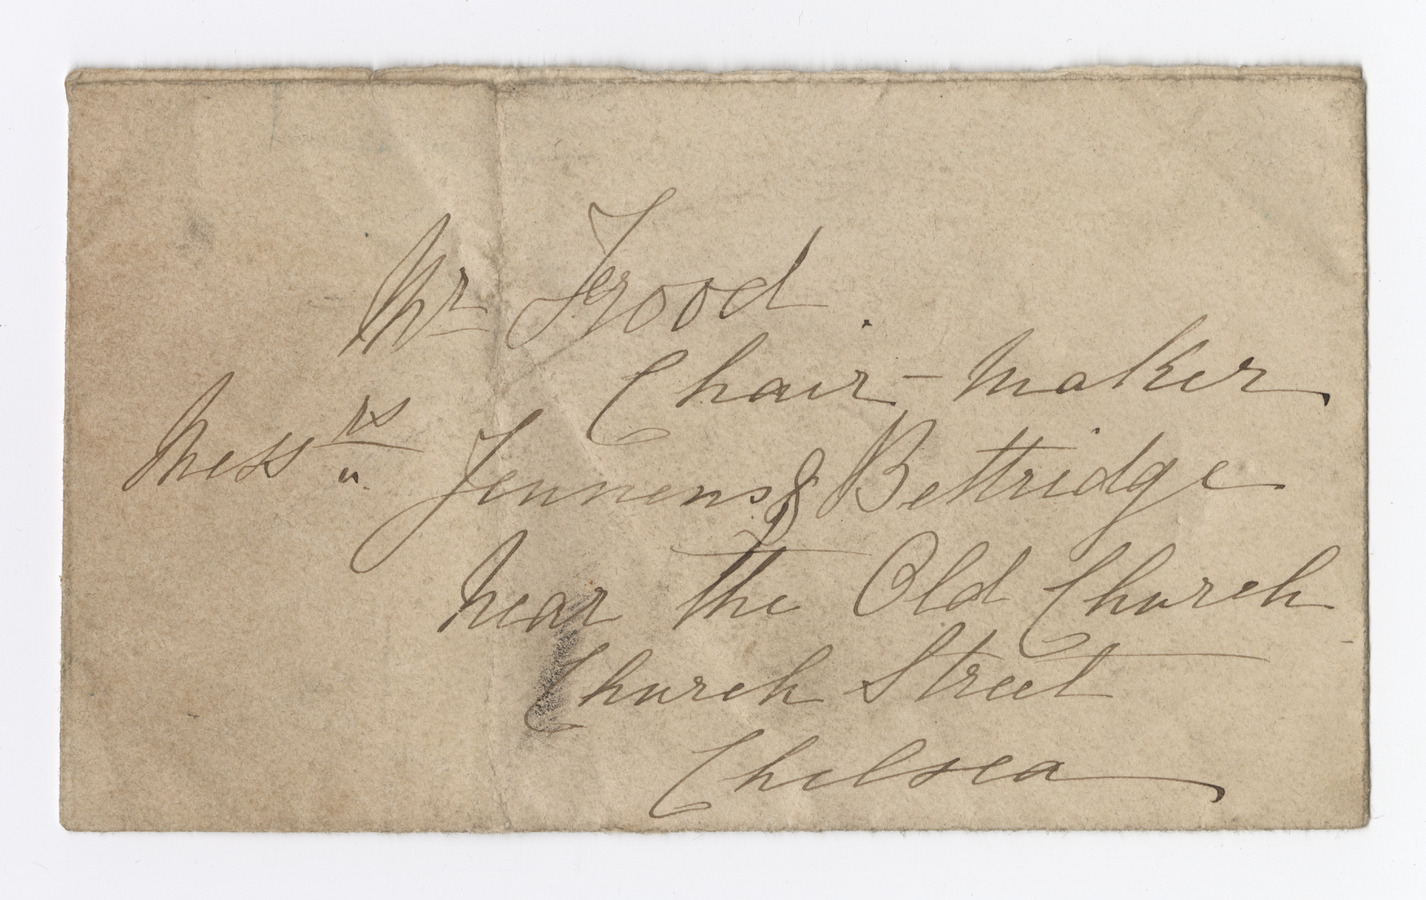 Mr Frood
Chair-Maker
Messrs Jennens & Bettridge
Near the Old Church
Church Street
Chelsea